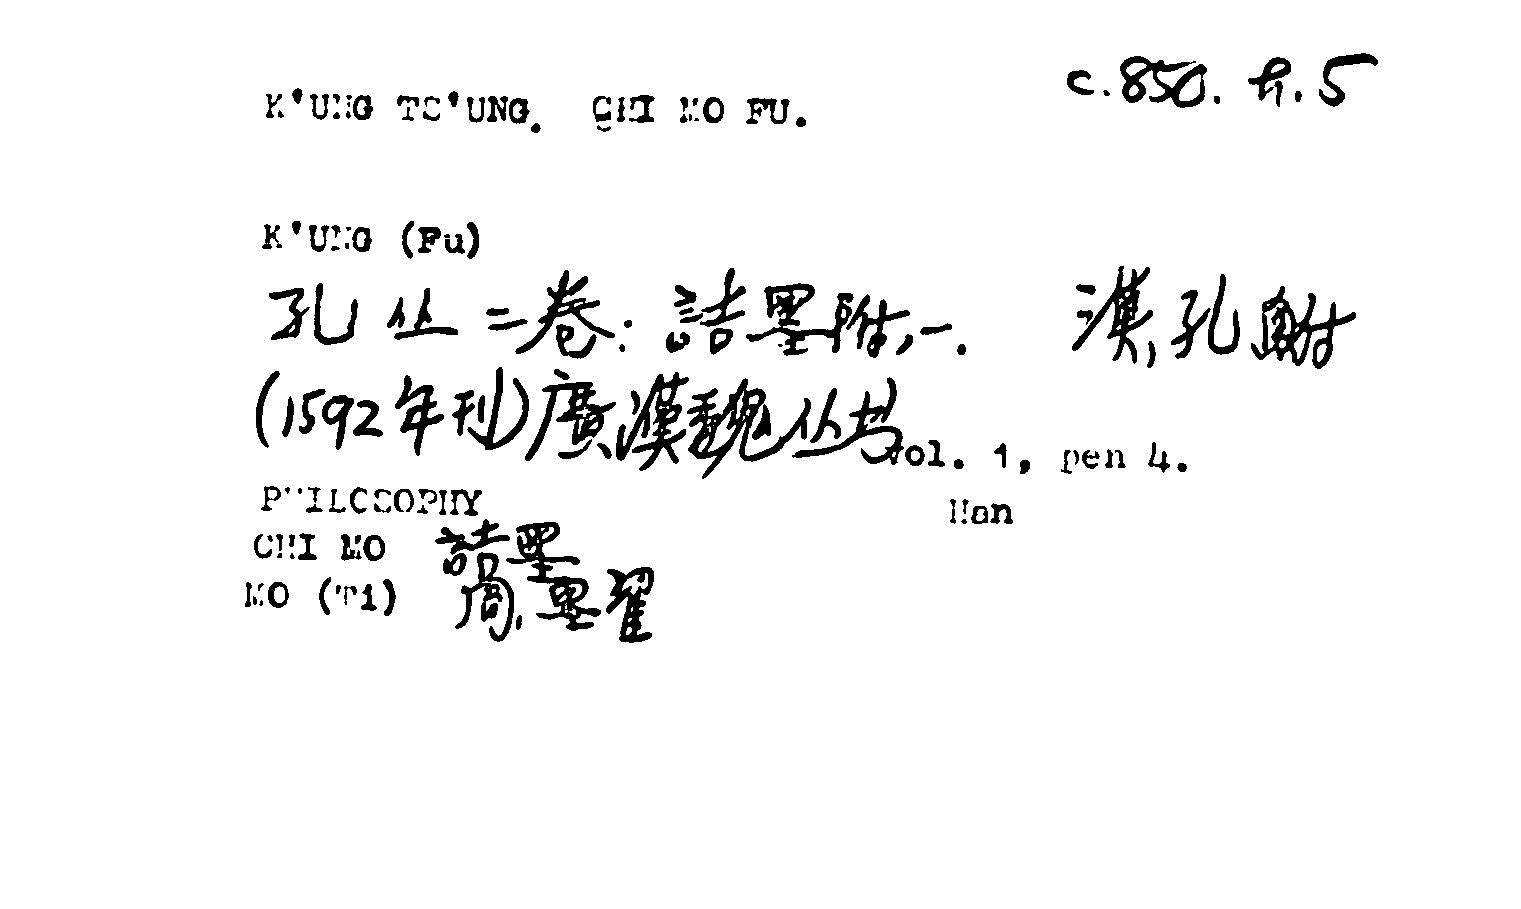 K'UNG TS'UNG. CHI MO FU. c.850. h.5
K'UNG (Fu)
孔丛二卷: 詰墨附,一. 漢,孔鮒
(1592年刊)廣漢魏丛书 Vol. 1, pen 4.
PHILOSOPHY Han
CHI MO 詰墨
MO (Ti) 周,墨翟